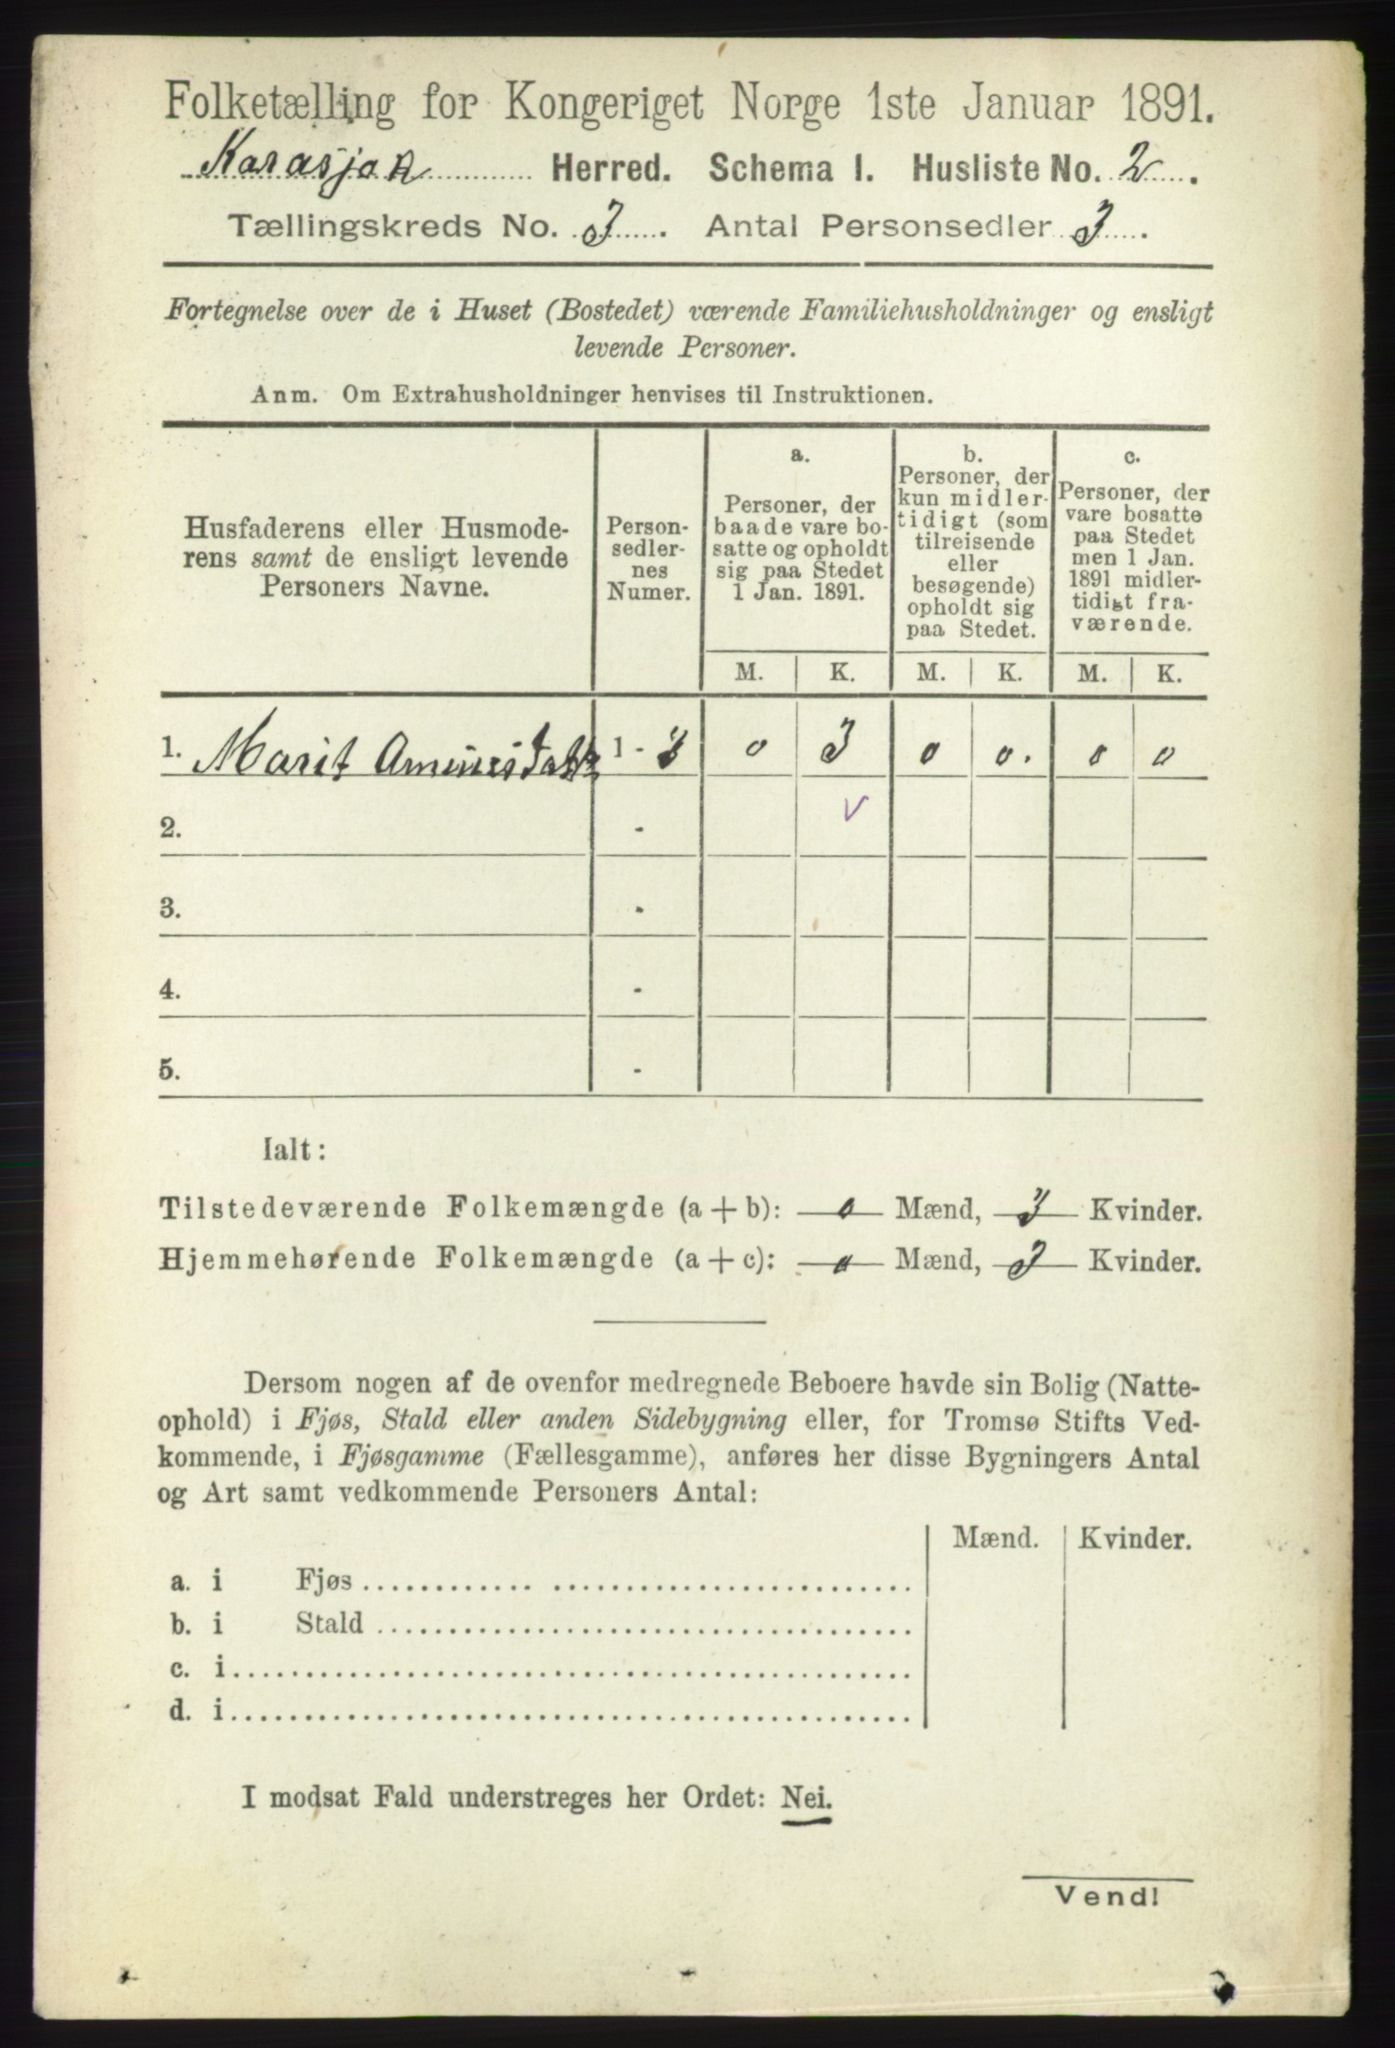 Folketælling for Kongeriget Norge 1ste Januar 1891.
Karasjok Herred. Schema I. Husliste No. 2.
Tællingskreds No. 3. Antal Personsedler 3.
Fortegnelse over de i Huset (Bostedet) værende Familiehusholdninger og ensligt
levende Personer.
Anm. Om Extrahusholdninger henvises til Instruktionen.
Husfaderens eller Husmode-
rens samt de ensligt levende
Personers Navne.
Person-
sedler-
nes
Numer.
a.
Personer, der
baade vare bo-
satte og opholdt
sig paa Stedet
1 Jan. 1891.
b.
Personer, der
kun midler-
tidigt (som
tilreisende
eller
besøgende)
opholdt sig
paa Stedet.
c.
Personer, der
vare bosatte
paa Stedet
men 1 Jan.
1891 midler-
tidigt fra-
værende.
M. K. M. K. M. K.
1. Marit 1 - 3 0 3 0 0. 0 0
2. -
3. -
4. -
5. -
Ialt:
Tilstedeværende Folkemængde (a + b): 0 Mænd, 3 Kvinder.
Hjemmehørende Folkemængde (a + c): 0 Mænd, 3 Kvinder.
Dersom nogen af de ovenfor medregnede Beboere havde sin Bolig (Natte-
ophold) i Fjøs, Stald eller anden Sidebygning eller, for Tromsø Stifts Ved-
kommende, i Fjøsgamme (Fællesgamme), anføres her disse Bygningers Antal
og Art samt vedkommende Personers Antal:
Mænd. Kvinder.
a. i Fjøs
b. i Stald
c. i
d. i
I modsat Fald understreges her Ordet: Nei.
Vend!